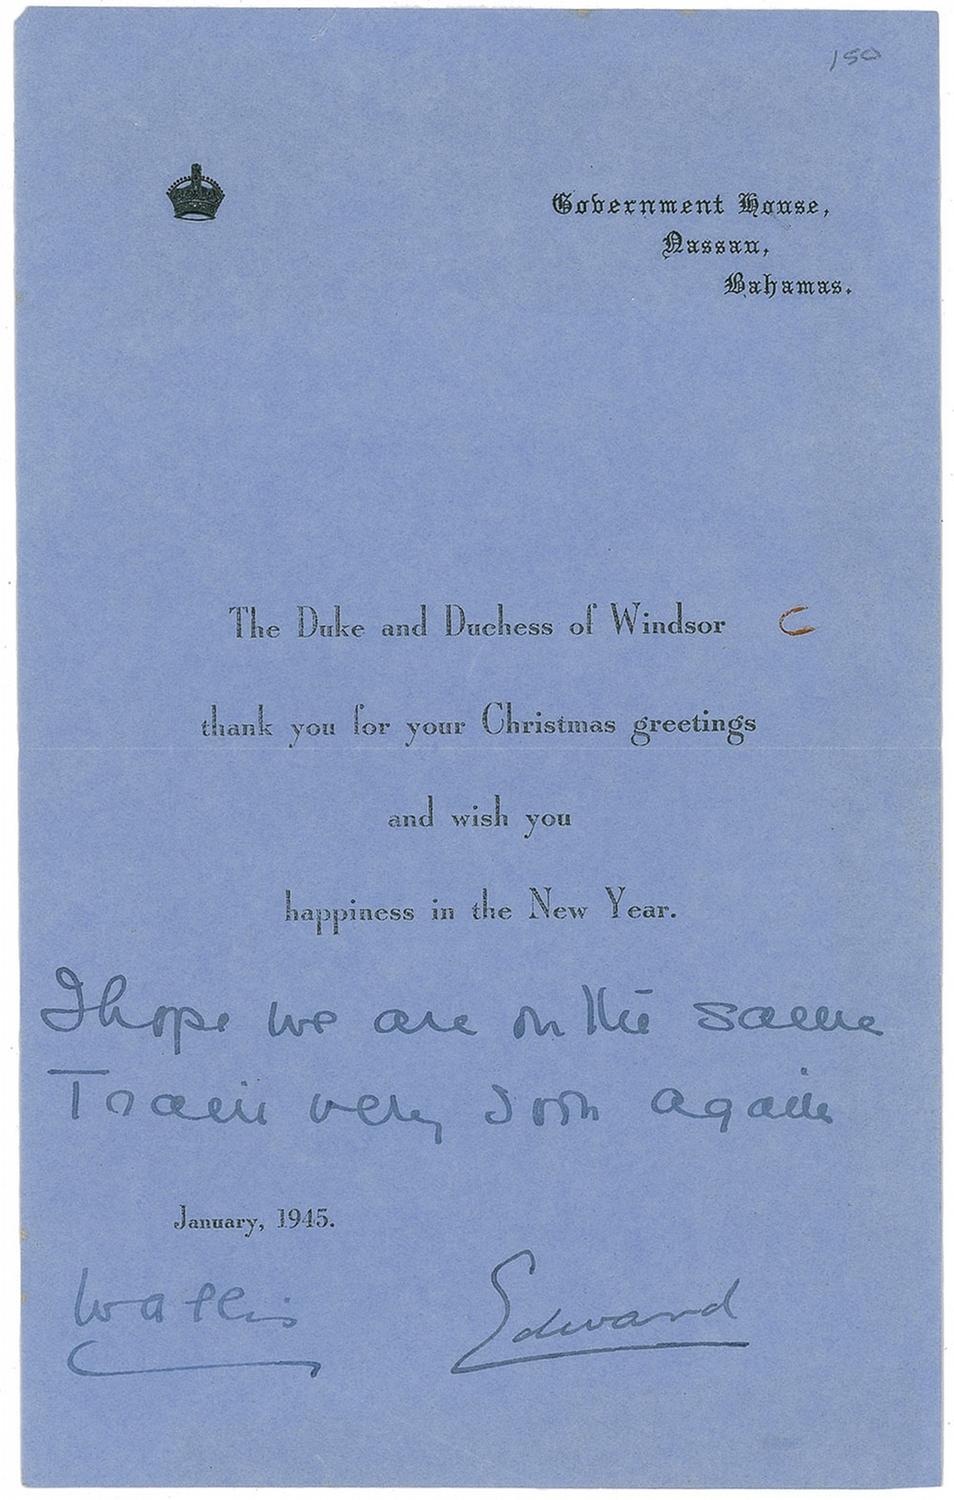 150
Government House,
Nassau,
Bahamas.
The Duke and Duchess of Windsor C
thank you for your Christmas greetings
and wish you
happiness in the New Year.
I hope we are on the same
Train very soon again
January, 1945.
Wallis Edward